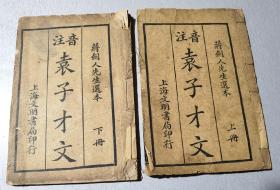 蔣劍人先生選本
音注
袁子才文
上冊
上海文明書局印行
蔣劍人先生選本
音注
袁子才文
下冊
上海文明書局印行